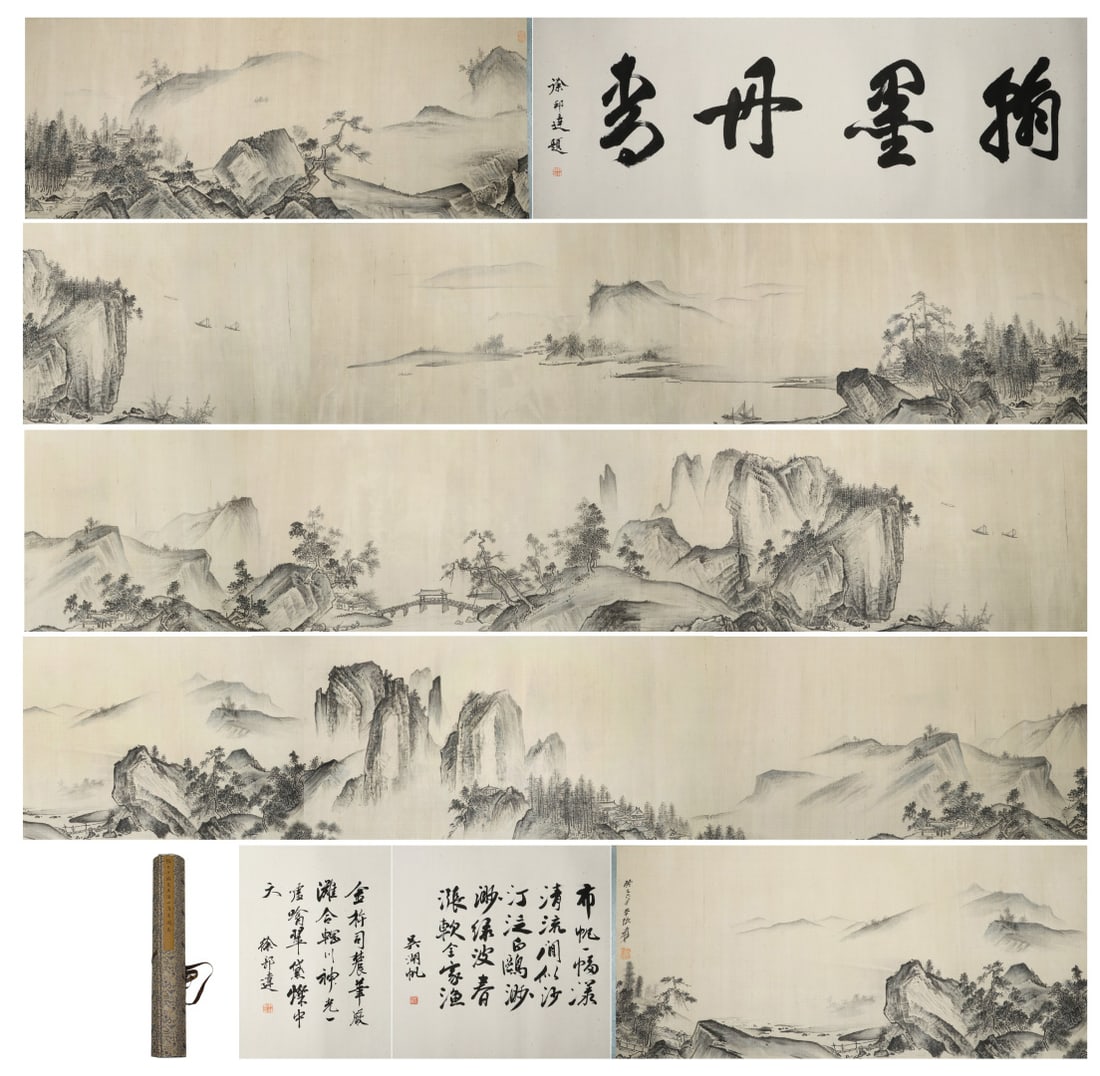 翰墨丹青
徐邦達題
癸 爰
布帆一幅漾
清流閒似沙
汀泛白鷗渺
渺绿波春
漲軟全家漁
吳湖帆
金粉司農華嚴
灘合輞川神光一
虛喻翠黛燦中
天
徐邦達